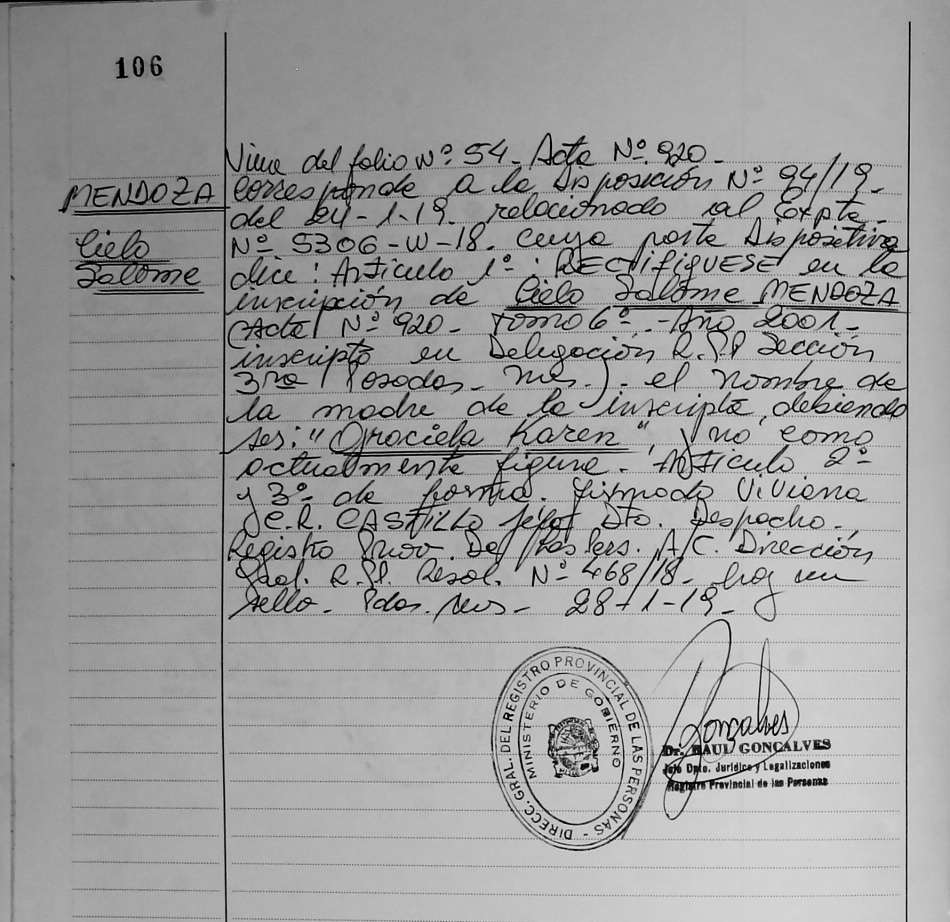 106
MENDOZA
Cielo
Salome
Viene del folio Nº 54 - Acta Nº 920 -
Corresponde a la Disposición Nº 94/19 -
del 24-1-19. relacionado al Expte -
Nº 5306-W-18. cuya parte Dispositiva
dice: Artículo 1º: RECTIFIQUESE en la
inscripción de Cielo Salome MENDOZA
(Acta Nº 920 - Tomo 6º - Año 2001 -
inscripta en Delegación R.P.P Sección
3ra Posadas - Mnes.). el nombre de
la madre de la inscripta, debiendo
ser: "Graciela Karen" y no como
actualmente figura. Artículo 2º
y 3º de forma. firmado Viviana
C.R. CASTILLO Jefa Dto. Despacho -
Registro Prov. De las Pers. A/C. Dirección
Gral. R.P. Resol. Nº 468/18 - hay un
sello. Pdas. Mns - 28-1-19 -
DIRECC. GRAL. DEL REGISTRO PROVINCIAL DE LAS PERSONAS -
MINISTERIO DE GOBIERNO
Gonzalves
Dr. RAUL GONCALVES
Jefe Dpto. Jurídico y Legalizaciones
Registro Provincial de las Personas